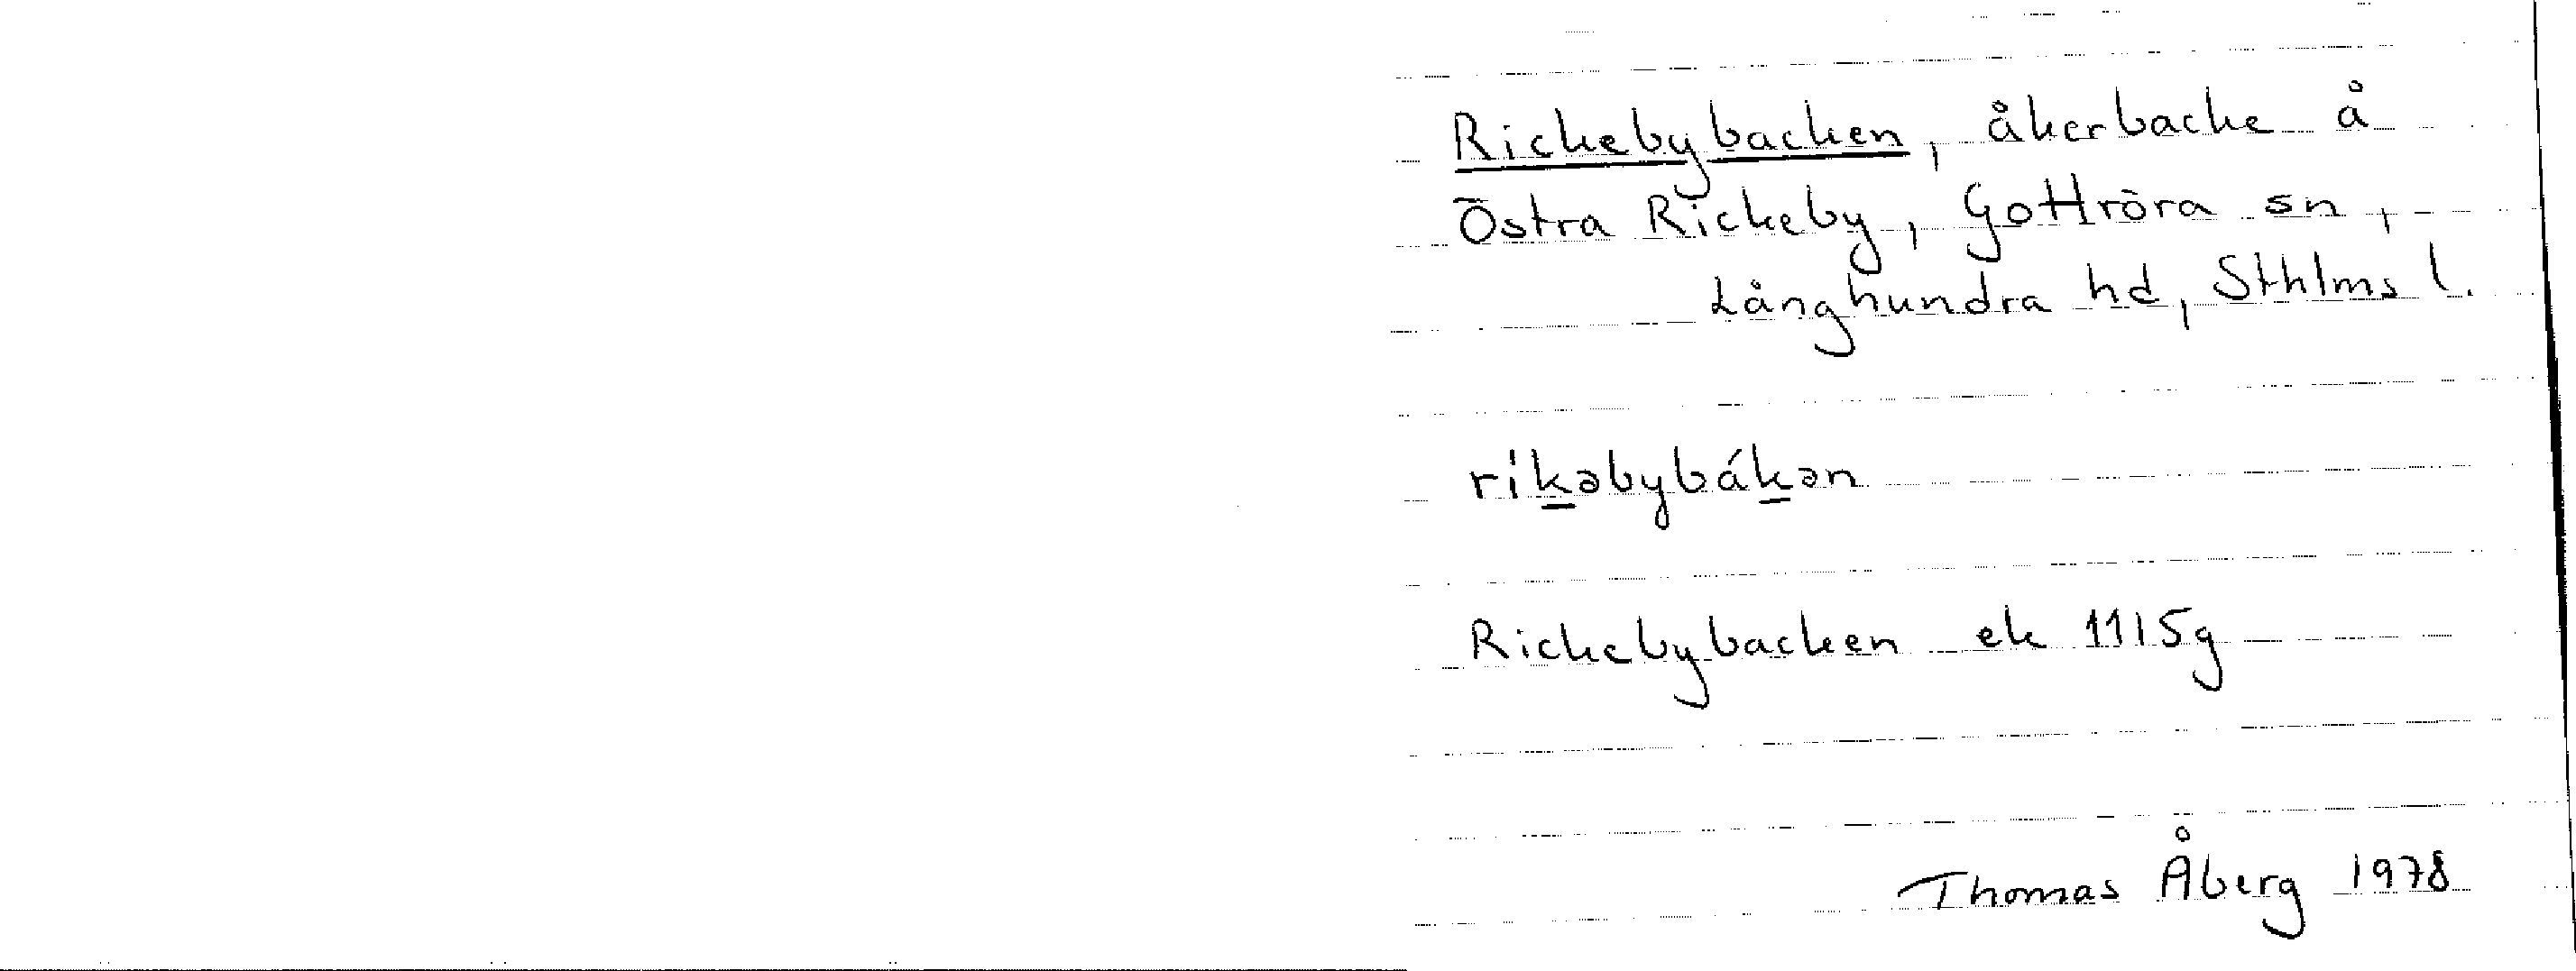 Rickebybacken, åkerbacke å
Östra Rickeby, Gottröra sn,
Långhundra hd, Sthlms l.
ríkəbybákən
Rickebybacken ek 11I5g
Thomas Åberg 1978